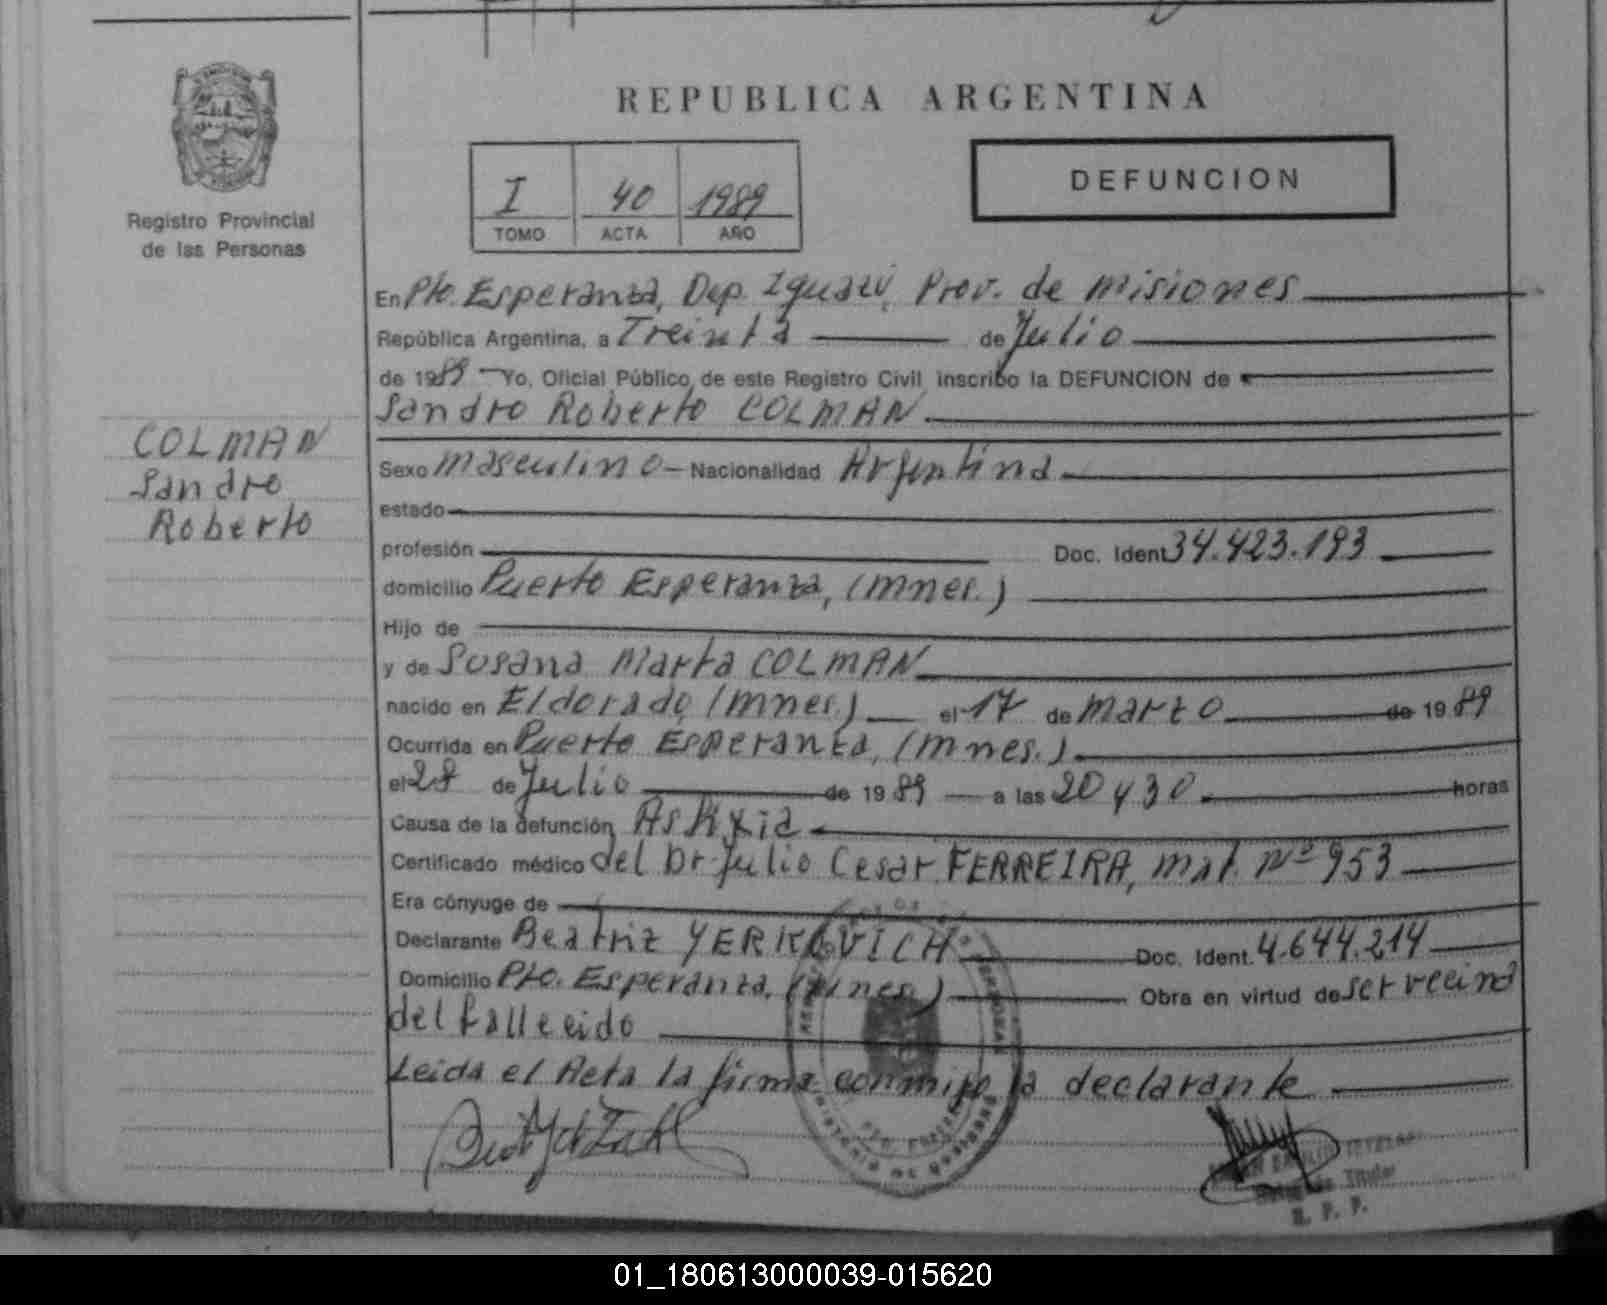 REPUBLICA ARGENTINA
I 40 1989
TOMO ACTA AÑO
DEFUNCION
Registro Provincial
de las Personas
COLMAN
Sandro
Roberto
En Pto. Esperanza, Dep. Iguazú, Prov. de Misiones
República Argentina, a Treinta de Julio
de 1989 Yo, Oficial Público de este Registro Civil inscribo la DEFUNCION de
Sandro Roberto COLMAN
Sexo masculino Nacionalidad Argentina
estado
profesión Doc. Ident 34.423.193
domicilio Puerto Esperanza, (Mnes.)
Hijo de
y de Susana Marta COLMAN
nacido en Eldorado (Mnes.) el 17 de Marzo de 1989
Ocurrida en Puerto Esperanza, (Mnes.)
el 28 de Julio de 1989 a las 20 y 30 horas
Causa de la defunción Asfixia
Certificado médico del Dr. Julio Cesar FERREIRA, mat. Nº 953
Era cónyuge de
Declarante Beatriz YERKOVICH Doc. Ident. 4.644.214
Domicilio Pto. Esperanza, (Mnes.) Obra en virtud de ser vecina
del fallecido
Leida el Acta la firma conmigo la declarante
Titular
R. P. P.
01_180613000039-015620